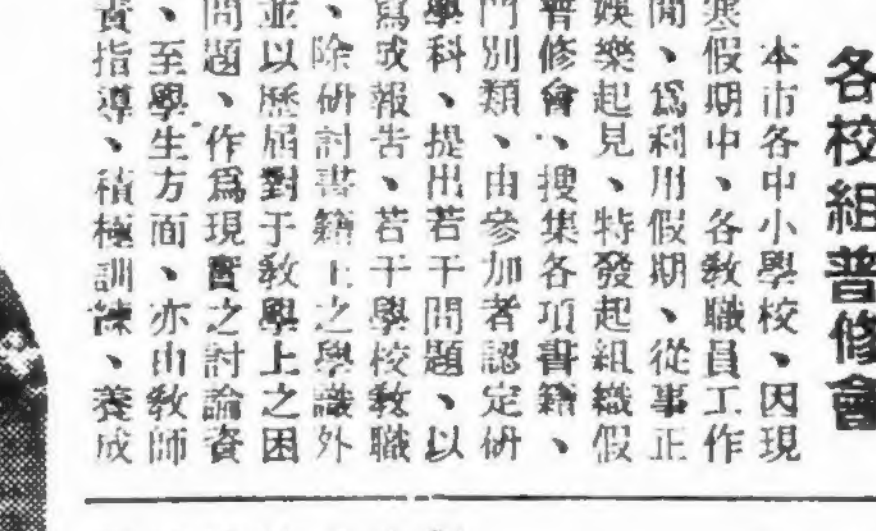 各校組普修會
本市各中小學校、因現
寒假期中、各教職員工作
閒、爲利用假期、從事正
娛樂起見、特發起組織假
普修會、搜集各項書籍、
門別類、由參加者認定研
學科、提出若干問題、以
寫成報告、若干學校教職
、除研討書籍上之學識外
並以歷屆對于教學上之困
問題、作爲現實之討論資
、至學生方面、亦由教師
責指導、積極訓練、養成